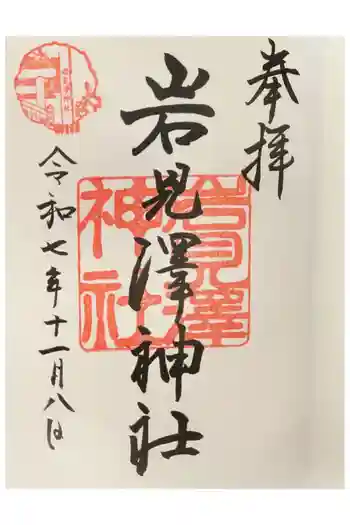 奉拝
岩見澤神社
岩見澤神社
令和七年十一月八日